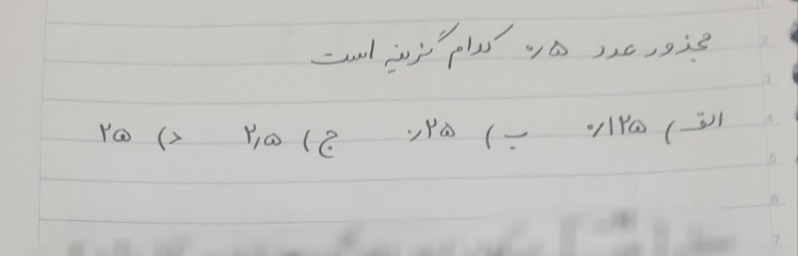 مجذور عدد ۰٫۵ کدام گزینه است
الف) ۰٫۱۲۵ ب) ۰٫۲۵ ج) ۲٫۵ د) ۲۵
2
3
4
5
6
7